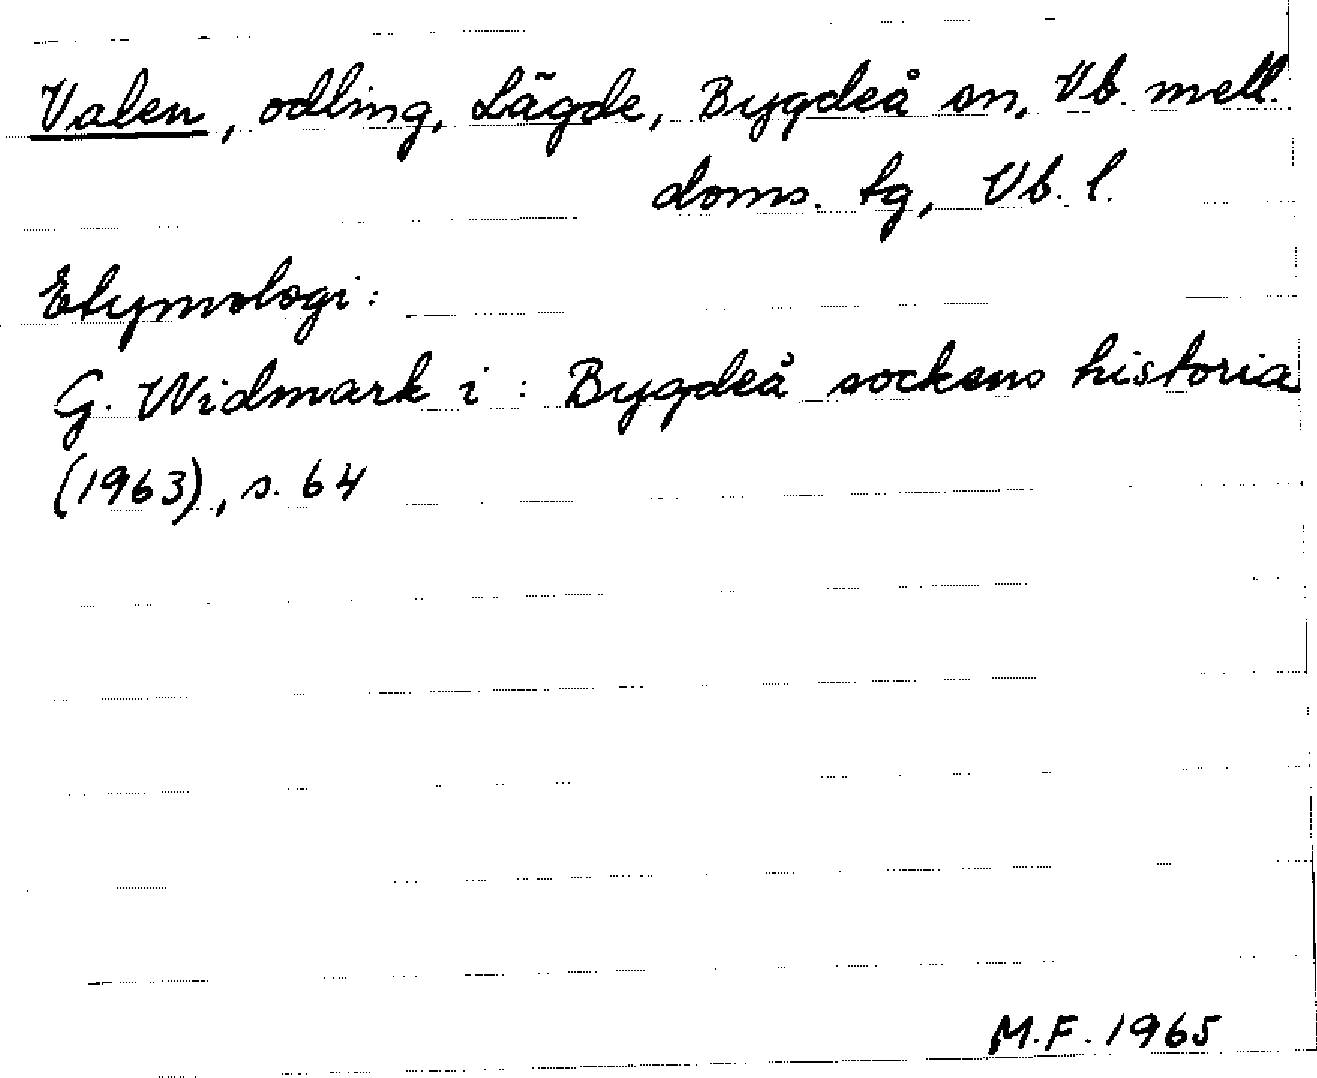 Valen, odling, Lägde, Bygdeå sn, Vb. mell.
doms. tg, Vb. l.
Etymologi:
G. Widmark i: Bygdeå sockens historia
(1963), s. 64
M.F. 1965